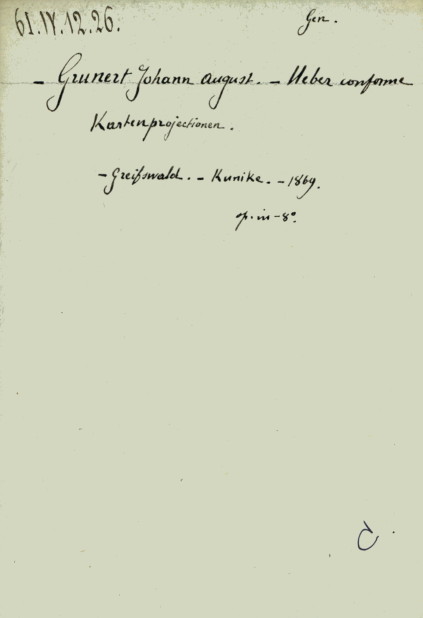 61.IV.12.26.
Gen.
- Grunert Johann August. - Ueber conforme
Kartenprojectionen.
- Greifswald. - Kunike. - 1869.
op. in-8°.
C